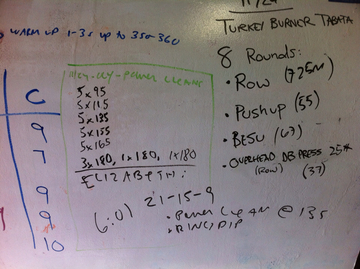 11/24
TURKEY BURNER TABATA
WARM UP 1-3s up to 350-360
8 Rounds:
• Row (725m)
• Pushup (55)
• BESU (67)
• OVERHEAD DB PRESS 25#
(ROW) (37)
C
9
7
9
9
10
power cleans
5x95
5x115
5x135
5x155
5x165
3x180, 1x180, 1x180
ELIZABETH:
21-15-9
• Power Clean @ 135
• RING DIP